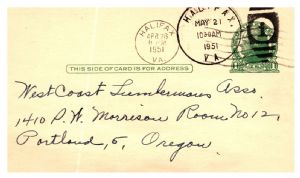 HALIFAX
APR 26
VA.
1951
HALIFAX,
MAY 21
10 AM
1951
VA.
1
THIS SIDE OF CARD IS FOR ADDRESS
West Coast Lumbermans Asso.
1410 P. W. Morrison Room No 12,
Portland, 5, Oregon.